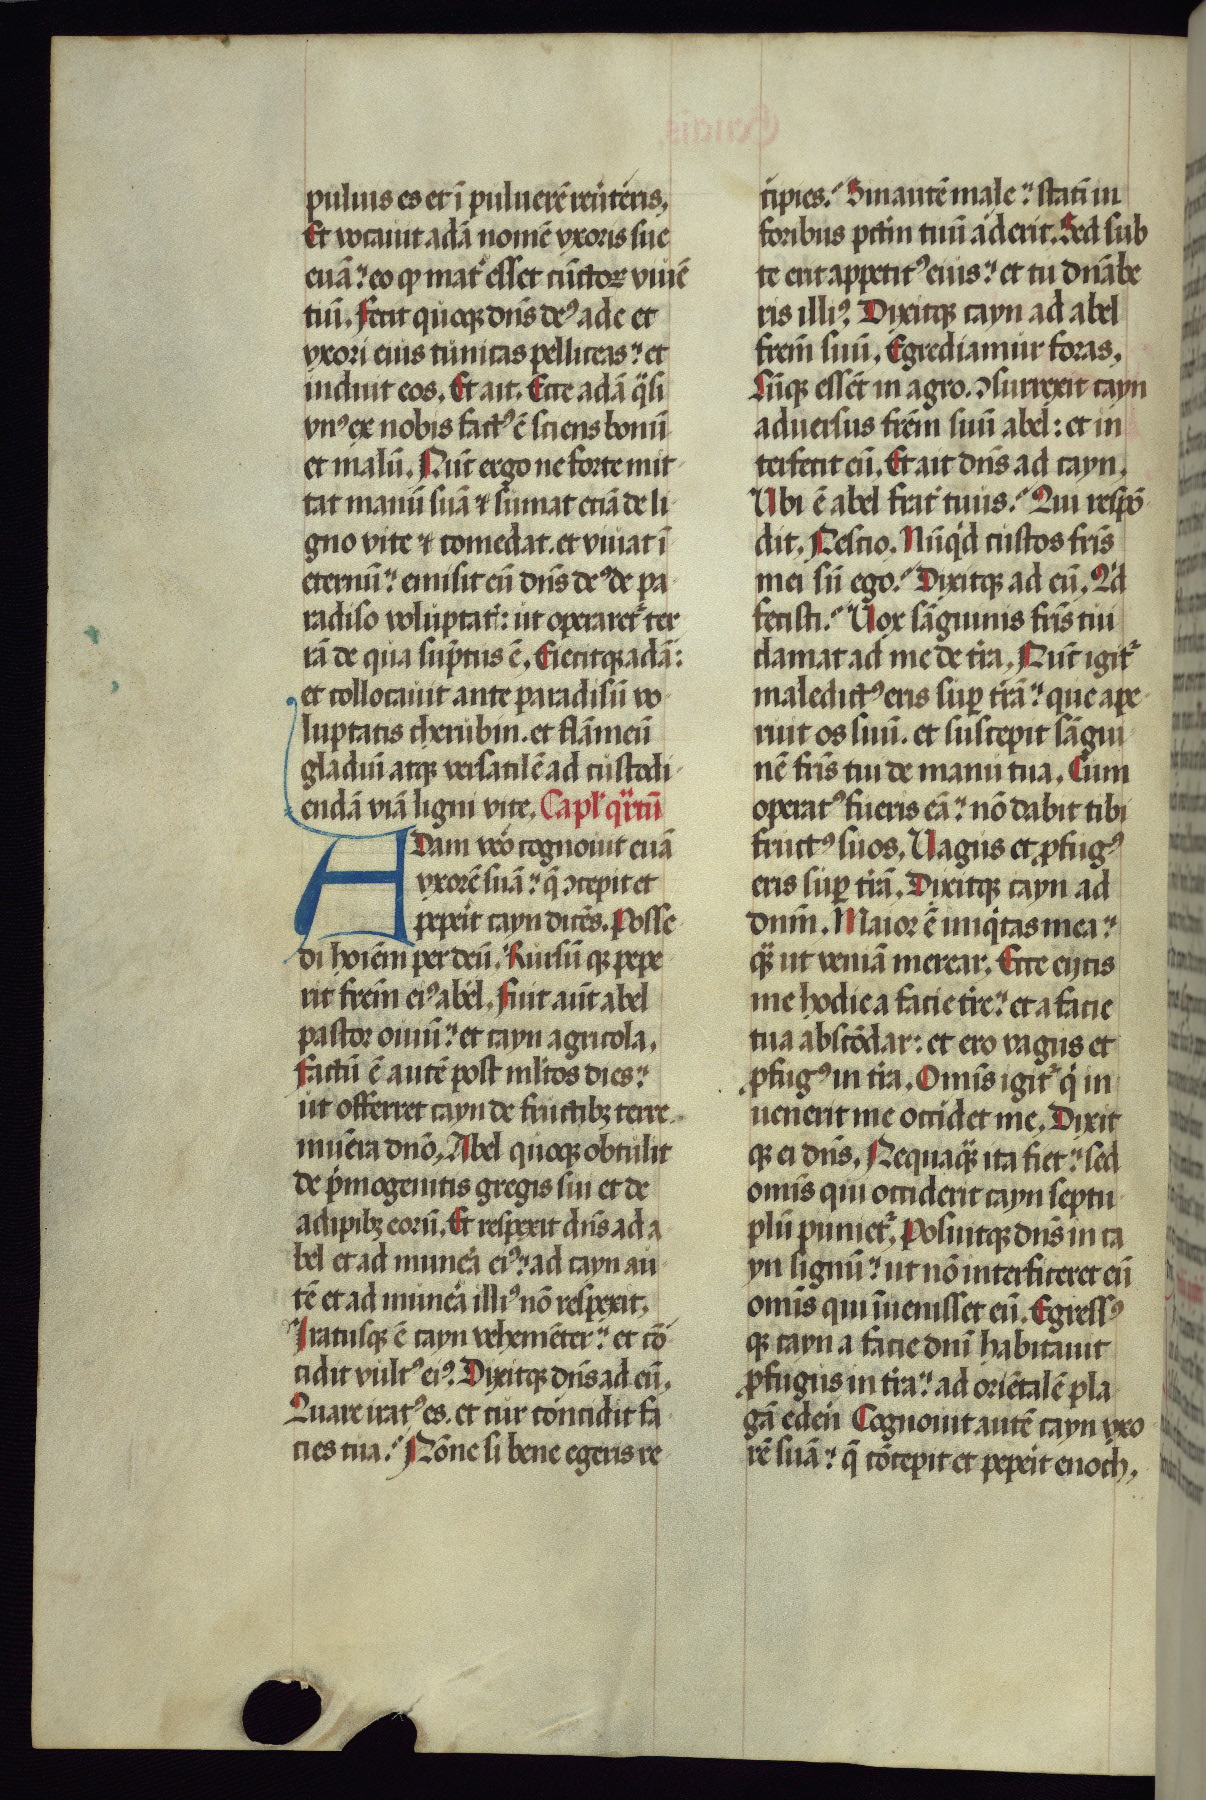 puluis es et ī puluerē reuteris,
Et vocauit adā nomē vxoris sue
euā: eo qp mat' esset cūctoꝝ viuē
tiū, Fecit quoqꝫ dn̄s de᷒ ade et
vxori eius tunicas pelliceas: et
induit eos, Et ait, Ecce adā q̈si
vn᷒ ex nobis fact᷒ ē sciens bonū
et malū, Nūc ergo ne forte mit
tat manū suā ⁊ sumat eciā de li
gno vite ⁊ comedat. et viuat ī
eternū: emisit eū dn̄s de᷒ de pa
radiso voluptat': ut operaret' ter
rā de qua sūptus ē, Eiecitqꝫ adā:
et collocauit ante paradisū vo
luptatis cherubin. et flāmeū
gladiū atqꝫ versatilē ad custodi
endā viā ligni vite, Capl' q̈rtū
Adam vēo cognouit euā
vxorē suā: q̄ ꝯcepit et
pepeīt cayn dicēs, Posse
di hoīem per deū, Rursū qꝫ pepe
rit frēm ei᷒ abel, Fuit aūt abel
pastor ouiū: et cayn agricola,
Factū ē autē post ml'tos dies:
ut offerret cayn de fructibꝫ terre
munera dnō, Abel quoqꝫ obtulit
de p̍mogenitis gregis sui et de
adipibꝫ eorū, Et respexit dn̄s ad a
bel et ad muneā ei᷒: ad cayn au
tē et ad muneā illi᷒ nō respexit,
Iratusqꝫ ē cayn vehemēter: et cō
cidit vult᷒ ei᷒, Dixitqꝫ dn̄s ad eū,
Quare irat᷒ es. et cur concidit fa
cies tua? Nōne si bene egeris re
cipies? Sin autē male: statī in
foribus pctm̄ tuū aderit, Sed sub
te erit appetit᷒ eius: et tu dn̄abe
ris illi᷒, Dixitqꝫ cayn ad abel
frēm suū, Egrediamur foras,
Cūqꝫ essēt in agro. ꝯsurrexit cayn
aduersus frēm suū abel: et in
terfecit eū, Et ait dn̄s ad cayn,
Ubi ē abel frat' tuus? Qui respō
dit, Nescio, Nūq̍d custos fr̄is
mei sū ego? Dixitqꝫ ad eū, Q̍d
fecisti? Vox sāguinis fr̄is tui
clamat ad me de tr̄a, Nūc igit'
maledict᷒ eris suꝑ tr̄ā: que ape
ruit os suū. et suscepit sāgui
nē fr̄is tui de manu tua, Cum
operat᷒ fueris eā: nō dabit tibi
fruct᷒ suos, Vagus et ꝓfug᷒
eris suꝑ tr̄ā, Dixitqꝫ cayn ad
dnm̄, Maior ē iniq̍tas mea:
q̈ꝫ ut veniā merear, Ecce eijcis
me hodie a facie tr̄e: et a facie
tua abscōdar: et ero vagus et
ꝓfug᷒ in tr̄a, Omīs igit' q̍ in
uenerit me occidet me, Dixit
qꝫ ei dn̄s, Nequaq̈ꝫ ita fiet: sed
omīs qui occiderit cayn septu
plū puniet', Posuitqꝫ dn̄s in ca
yn signū: ut nō interficeret eū
omīs qui īuenisset eū, Egress᷒
qꝫ cayn a facie dnī habitauit
ꝓfugus in tr̄a: ad oriētalē pla
gā eden Cognouit autē cayn vxo
rē suā: q̄ cōcepit et pepeīt enoch,